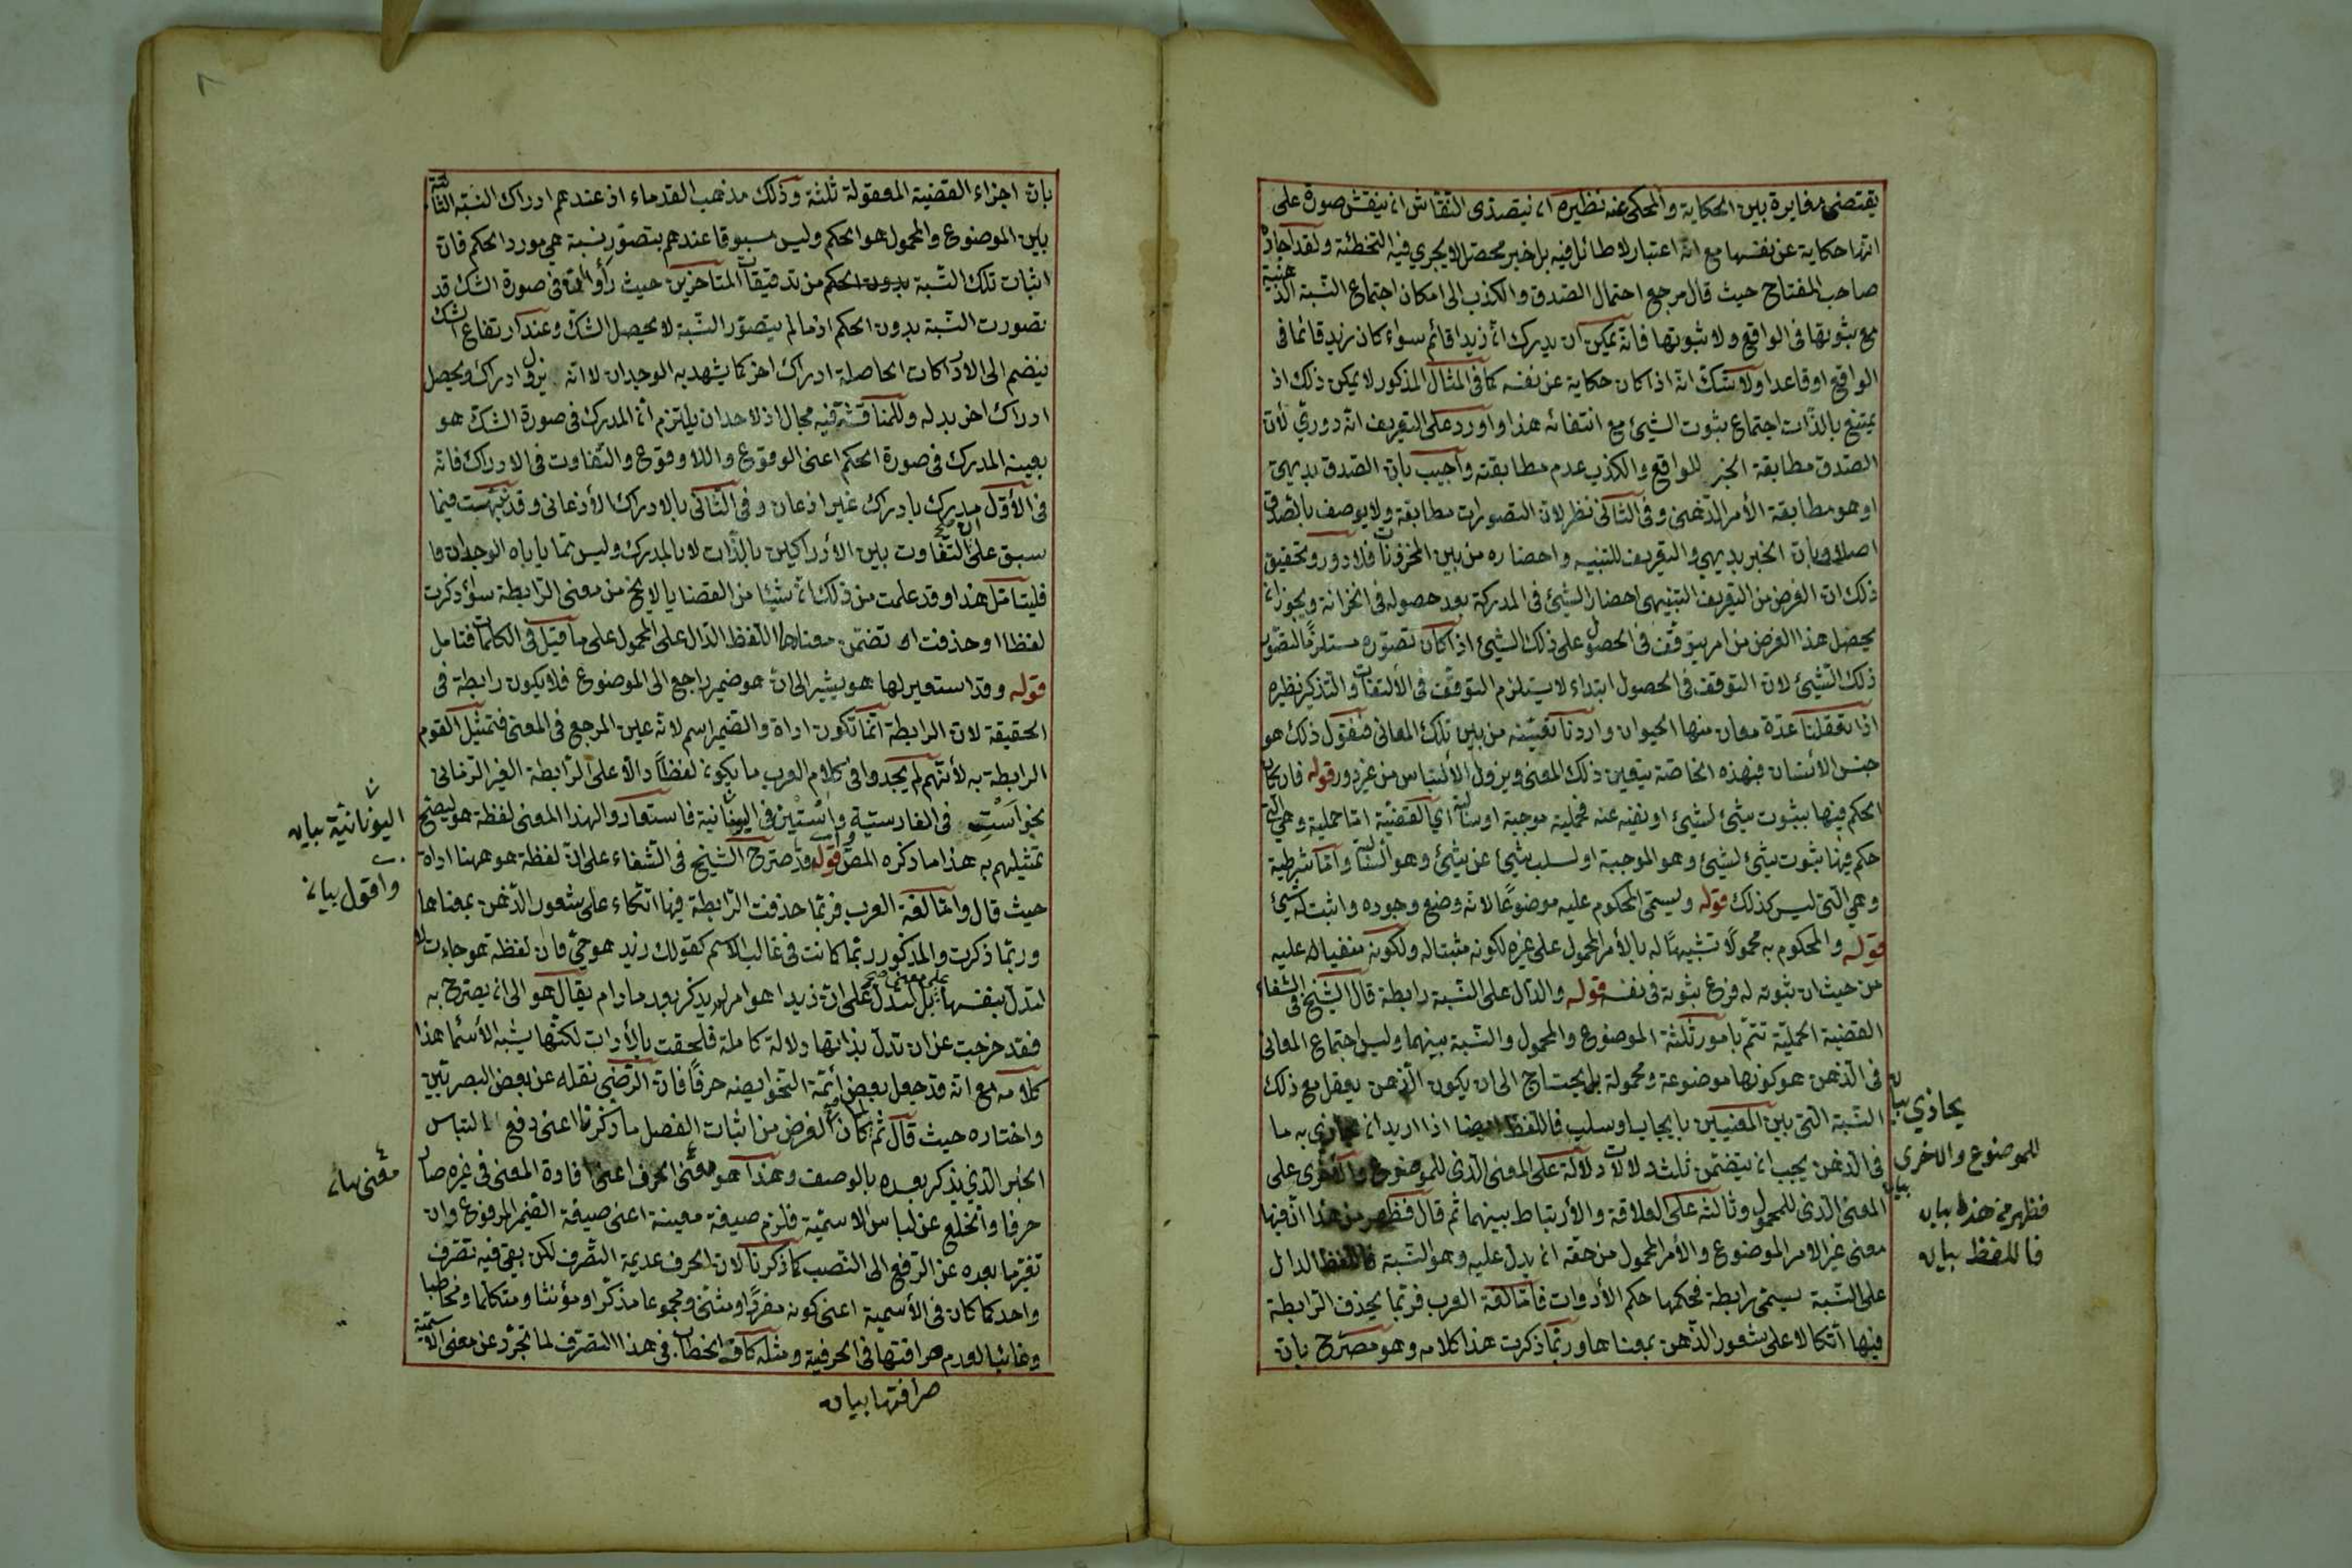 يقتضى مغايرة بين الحكاية والمحكى عنه نظيره ان يتصدى النقاش ان ينقش صورة على
انها حكاية عن نفسها مع انه اعتبار لا طائل فيه بل خبر محصل لا يجري فيه التخطئة ولقد اجاد
صاحب المفتاح حيث قال مرجع احتمال الصدق والكذب الى امكان اجتماع النسبة الذهنية
مع ثبوتها فى الواقع ولا ثبوتها فانه يمكن ان يدرك ان زيدا قائم سواء كان زيد قائما فى
الواقع او قاعدا ولا شك انه اذا كان حكاية عن نفسه كما فى المثال المذكور لا يمكن ذلك اذ
يمتنع بالذات اجتماع ثبوت الشيئ مع انتفائه هذا واورد على التعريف انه دوري لأن
الصدق مطابقة الخبر للواقع والكذب عدم مطابقته واجيب بان الصدق بديهى
او هو مطابقة الأمر الذهنى وفى الثانى نظر لان التصورات مطابقة ولا يوصف بالصدق
اصلا وبان الخبر بديهي والتعريف للتنبيه واحضاره من بين المخزونات فلا دور وتحقيق
ذلك ان الغرض من التعريف التنبيهى احضار الشيئ فى المدركة بعد حصوله فى الخزانة ويجوز ان
يحصل هذا الغرض من امر يتوقف فى الحصول على ذلك الشيئ اذا كان تصوره مستلزما لتصور
ذلك الشيئ لان التوقف فى الحصول ابتداء لا يستلزم التوقف فى الألتفات والتذكير نظيره
اذا تعقلنا عدة معان منها الحيوان واردنا تعيينه من بين تلك المعانى فنقول ذلك هو
جنس الأنسان فبهذه الخاصة يتعين ذلك المعنى ويزول الألتباس من غير دور قوله فان كان
الحكم فيها بثبوت شيئ لشيئ او نفيه عنه فحملية موجبة او سالبة اي القضية اما حملية وهي التى
حكم فيها بثبوت شيئ لشيئ وهو الموجبة او لسلب شيئ عن شيئ وهو السالبة واما شرطية
وهي التى ليس كذلك قوله ويسمى المحكوم عليه موضوعا لانه وضع وجوده واثبت له شيئ
قوله والمحكوم به محمولا تشبيها له بالأمر المحمول على غيره لكونه مثبتا له ولكونه منفيا له عليه
من حيث ان ثبوته له فرع ثبوته فى نفسه قوله والدال على النسبة رابطة قال الشيخ فى الشفاء
القضية الحملية تتم بامور ثلثة الموضوع والمحمول والنسبة بينهما وليس اجتماع المعانى
فى الذهن هو كونها موضوعة ومحمولة بل يحتاج الى ان يكون الذهن يعقل مع ذلك
النسبة التى بين المعنيين بايجاب او سلب فاللفظ ايضا اذا اريد ان يحاذي به ما
فى الذهن يجب ان يتضمن ثلث دلالات دلالة على المعنى الذى للموضوع والاخرى على
المعنى الذى للمحمول وثالثة على العلاقة والأرتباط بينهما ثم قال فظهر من هذا ان فيها
معنى غير الامر الموضوع والأمر المحمول من حقه ان يدل عليه وهو النسبة فاللفظ الدال
على النسبة يسمى رابطة فحكمها حكم الأدوات فاما لغة العرب فربما يحذف الرابطة
فيها اتكالا على شعور الذهن بمعناها وربما ذكرت هذا كلامه وهو مصرح بان
يحاذي بيان
للموضوع والاخرى
بيان
فظهر من هذه بيان
فاللفظ بيان
بان اجزاء القضية المعقولة ثلثة وذلك مذهب القدماء اذ عندهم ادراك النسبة الثالثة
بين الموضوع والمحمول هو الحكم وليس مسبوقا عندهم بتصور نسبة هى مورد الحكم فان
اثبات تلك النسبة بدون الحكم من تدقيقات المتاخرين حيث رأوا انه فى صورة الشك قد
تصورت النسبة بدون الحكم اذ ما لم يتصور النسبة لا يحصل الشك وعند ارتفاع الشك
ينضم الى الادراكات الحاصلة ادراك اخر كما يشهد به الوجدان لا انه يزول ادراك ويحصل
ادراك اخر بدله وللمناقشة فيه مجال اذ لاحد ان يلتزم ان المدرك فى صورة الشك هو
بعينه المدرك فى صورة الحكم اعنى الوقوع واللا وقوع والتفاوت فى الادراك فانه
فى الأول مدرك بادراك غير اذعان وفى الثانى بالادراك الأذعانى وقد نبهت فيما
سبق على ان التفاوت بين الأدراكين بالذات لا بالمدرك وليس مما ياباه الوجدان ما
فليتامل هذا وقد علمت من ذلك ان شيئا من القضايا لا يخ من معنى الرابطة سواء ذكرت
لفظا او حذفت او تضمن معناها اللفظ الدال على المحمول على ما قيل فى الكلمات فتامل
قوله وقد استعير لها هو يشير الى ان هو ضمير راجع الى الموضوع فلا يكون رابطة فى
الحقيقة لان الرابطة انما تكون اداة والضمير اسم لانه عين المرجع فى المعنى فتمثيل القوم
الرابطة به لأنهم لم يجدوا فى كلام العرب ما يكون لفظا دالا على الرابطة الغير الزمانى
نحو است فى الفارسية واستين فى اليونانية فاستعاروا لهذا المعنى لفظة هو ليصح
تمثيلهم به هذا ما ذكره المص قوله وقد صرح الشيخ فى الشفاء على ان لفظة هو ههنا اداة
حيث قال واما لغة العرب فربما حذفت الرابطة فيها اتكاء على شعور الذهن بمعناها
وربما ذكرت والمذكور ربما كانت فى غالب الاسم كقولك زيد هو حى فان لفظة هو جاءت لا
لتدل بنفسها على معنى بل لتدل على ان زيدا هو امر لم يذكر بعد ما دام يقال هو الى ان يصرح به
فقد خرجت عن ان تدل بذاتها دلالة كاملة فلحقت بالأدوات لكنها يشبه الأسماء هذا
كلامه مع انه قد جعل بعض أئمة النحو ايضه حرفا فان الرضى نقله عن بعض البصريين
واختاره حيث قال ثم لما كان الغرض من اثبات الفصل ما ذكرنا اعنى دفع التباس
الخبر الذي يذكر بعده بالوصف وهذا هو معنى الحرف اعنى افادة المعنى فى غيره صار
حرفا وانخلع عن لباس الاسمية فلزم صيغة معينة اعنى صيغة الضمير المرفوع وان
تغير ما بعده عن الرفع الى النصب كما ذكرنا لان الحرف عديمة التصرف لكن بقى فيه تصرف
واحد كما كان فى الأسمية اعنى كونه مفردا ومثنى ومجموعا مذكرا ومؤنثا ومتكلما ومخاطبا
وغائبا لعدم عراقتها فى الحرفية ومثله كاف الخطاب فى هذا التصرف لما تجرد عن معنى الاسمية
اليونانية بيان
واقول بيان
معنى بيان
صرافتها بيان